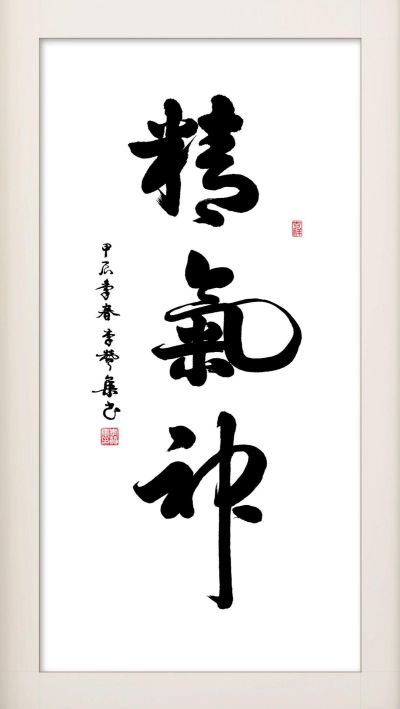 精氣神
甲辰季春李梦集书